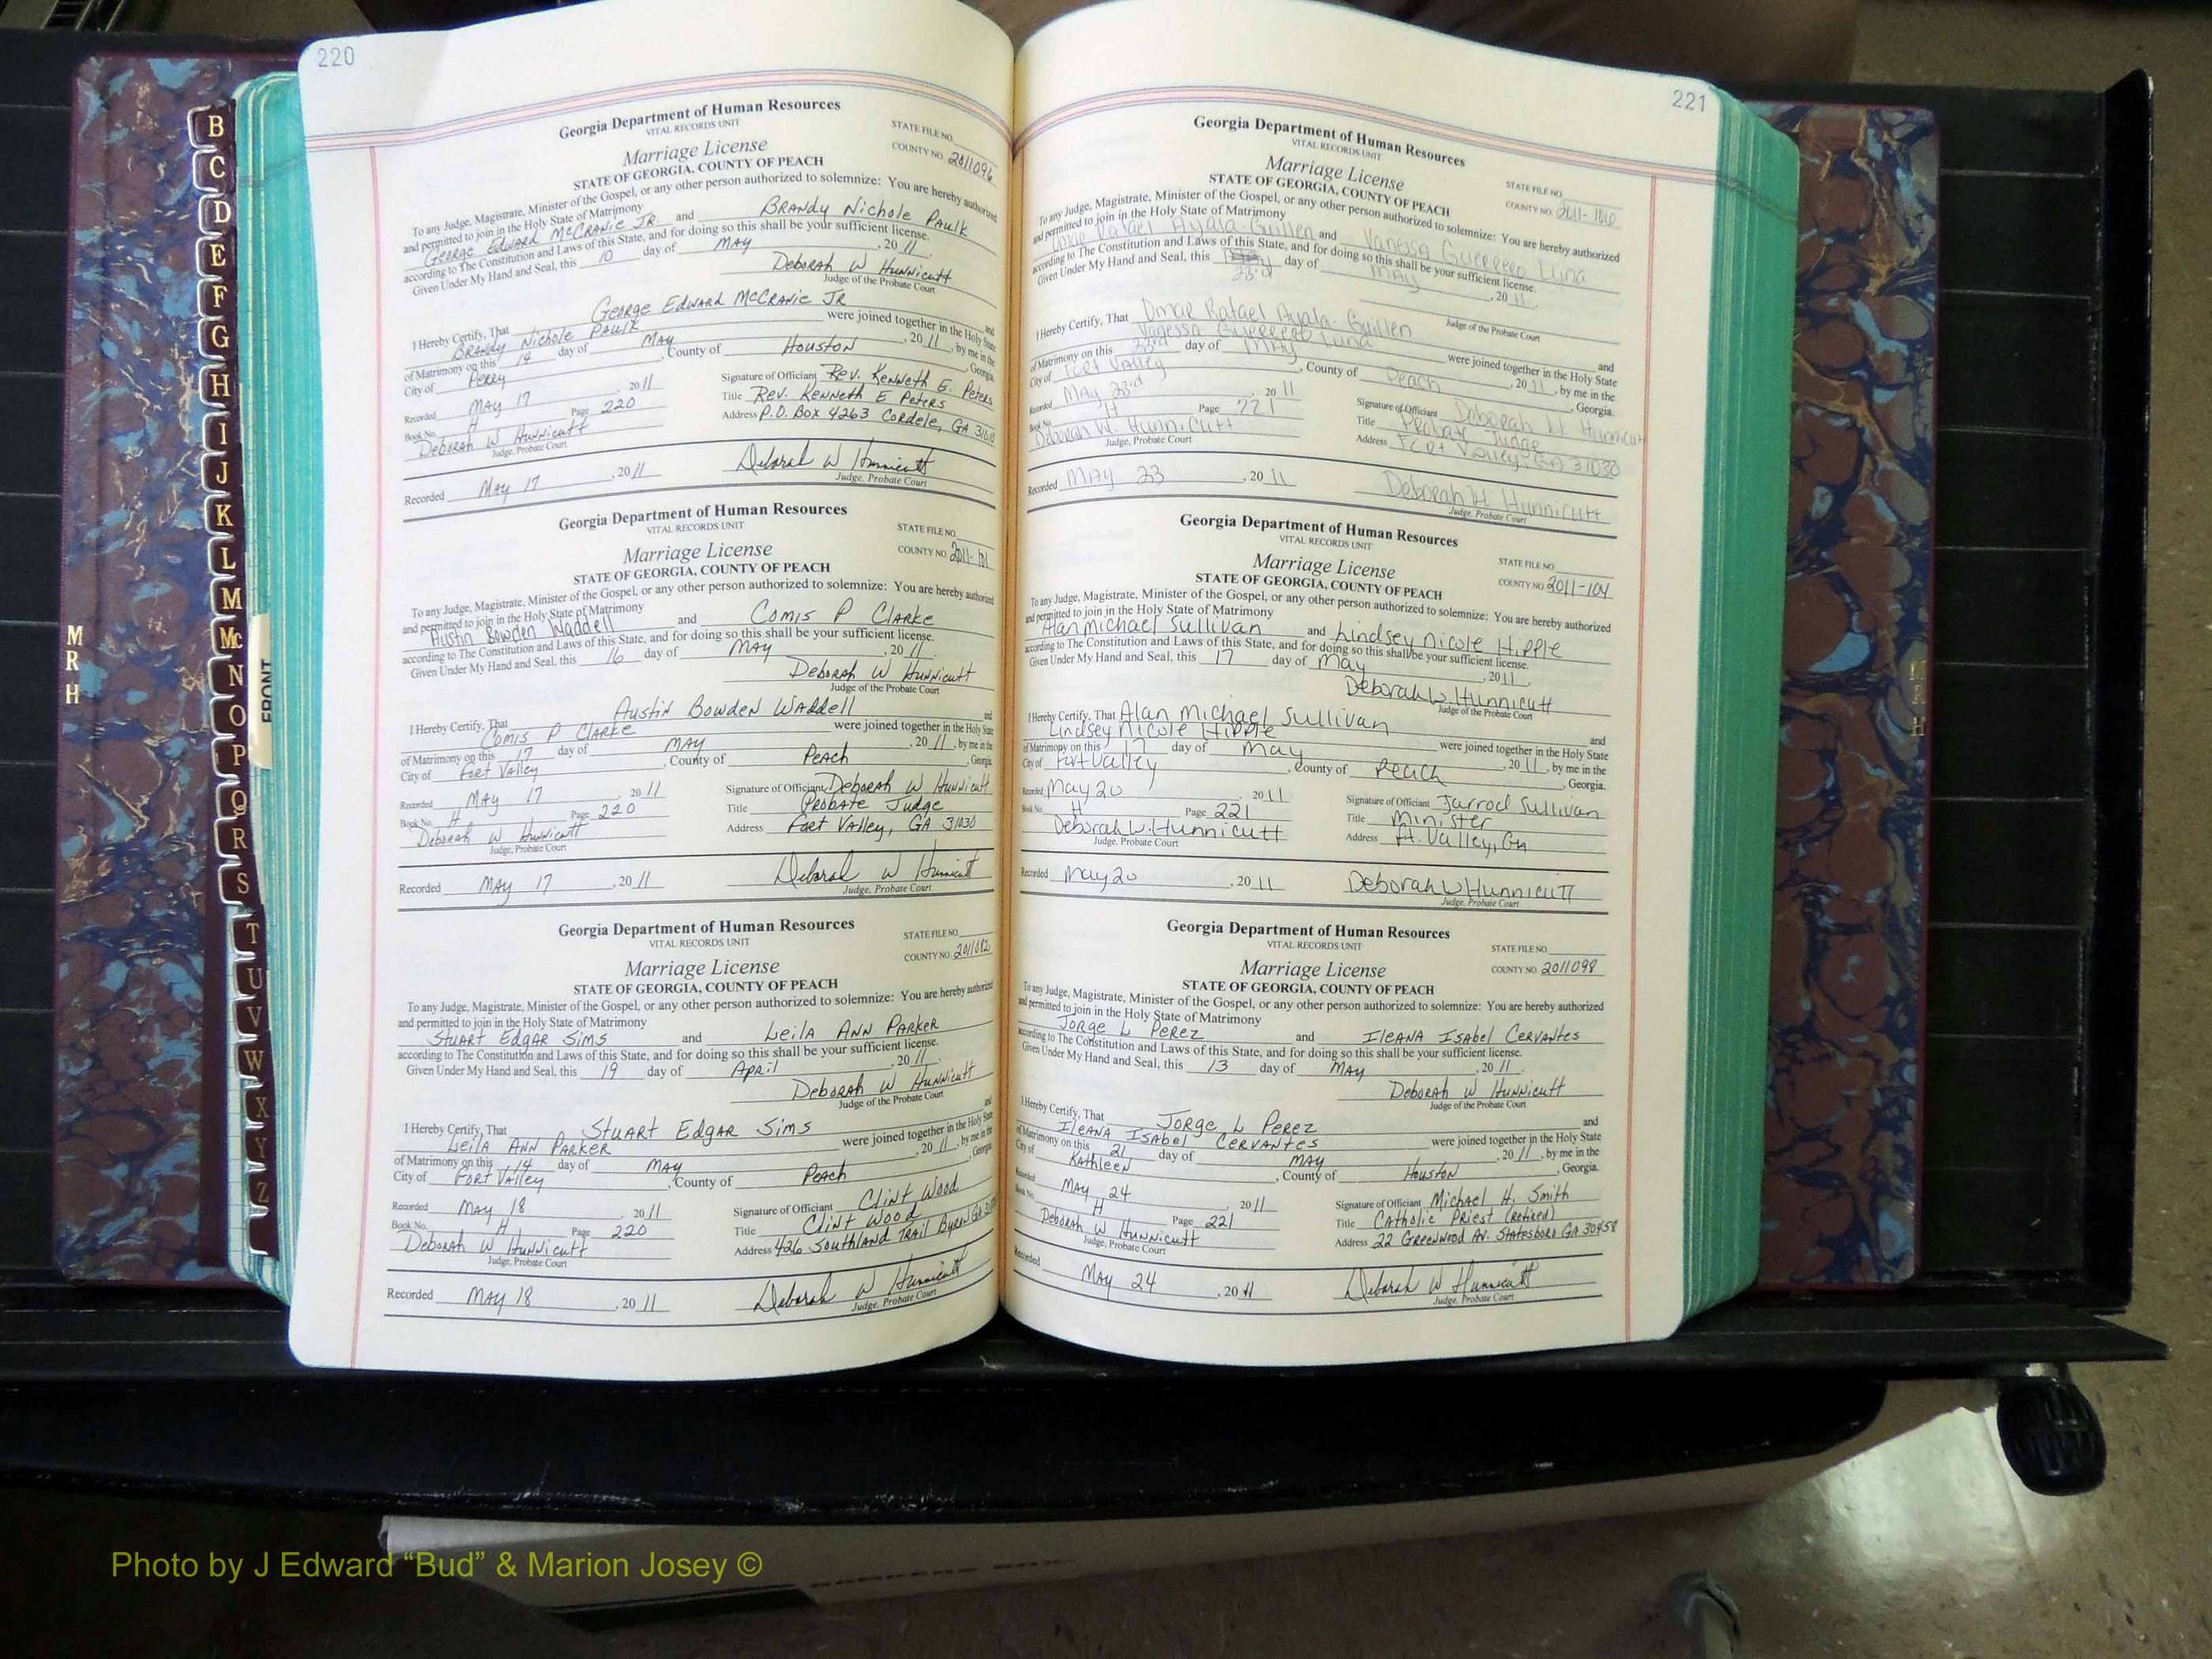 220
Georgia Department of Human Resources
VITAL RECORDS UNIT
STATE FILE NO.
Marriage License
COUNTY NO. 2011096
STATE OF GEORGIA, COUNTY OF PEACH
To any Judge, Magistrate, Minister of the Gospel, or any other person authorized to solemnize: You are hereby authorized
and permitted to join in the Holy State of Matrimony
George Edward McCranie JR. and Brandy Nichole Paulk
according to The Constitution and Laws of this State, and for doing so this shall be your sufficient license.
Given Under My Hand and Seal, this 10 day of May , 20 11.
Deborah W Hunnicutt
Judge of the Probate Court
I Hereby Certify, That George Edward McCranie JR and
Brandy Nichole Paulk were joined together in the Holy State
of Matrimony on this 14 day of May , 20 11, by me in the
City of Perry , County of Houston , Georgia.
Recorded May 17 20 11 Signature of Officiant Rev. Kenneth E. Peters
Book No. H Page 220 Title Rev. Kenneth E Peters
Deborah W Hunnicutt Address P.O. Box 4263 Cordele, GA
Judge, Probate Court
Recorded May 17 , 20 11 Deborah W Hunnicutt
Judge, Probate Court
Georgia Department of Human Resources
VITAL RECORDS UNIT
STATE FILE NO.
Marriage License
COUNTY NO. 2011-101
STATE OF GEORGIA, COUNTY OF PEACH
To any Judge, Magistrate, Minister of the Gospel, or any other person authorized to solemnize: You are hereby authorized
and permitted to join in the Holy State of Matrimony
Austin Bowden Waddell and Comis P Clarke
according to The Constitution and Laws of this State, and for doing so this shall be your sufficient license.
Given Under My Hand and Seal, this 16 day of May , 20 11.
Deborah W Hunnicutt
Judge of the Probate Court
I Hereby Certify, That Austin Bowden Waddell and
Comis P Clarke were joined together in the Holy State
of Matrimony on this 17 day of May , 20 11, by me in the
City of Fort Valley , County of Peach , Georgia.
Recorded May 17 20 11 Signature of Officiant Deborah W Hunnicutt
Book No. H Page 220 Title Probate Judge
Deborah W Hunnicutt Address Fort Valley, GA 31030
Judge, Probate Court
Recorded May 17 , 20 11 Deborah W Hunnicutt
Judge, Probate Court
Georgia Department of Human Resources
VITAL RECORDS UNIT
STATE FILE NO.
Marriage License
COUNTY NO. 2011082
STATE OF GEORGIA, COUNTY OF PEACH
To any Judge, Magistrate, Minister of the Gospel, or any other person authorized to solemnize: You are hereby authorized
and permitted to join in the Holy State of Matrimony
Stuart Edgar Sims and Leila Ann Parker
according to The Constitution and Laws of this State, and for doing so this shall be your sufficient license.
Given Under My Hand and Seal, this 19 day of April , 20 11.
Deborah W Hunnicutt
Judge of the Probate Court
I Hereby Certify, That Stuart Edgar Sims and
Leila Ann Parker were joined together in the Holy State
of Matrimony on this 14 day of May , 20 11, by me in the
City of Fort Valley , County of Peach , Georgia.
Recorded May 18 , 20 11 Signature of Officiant Clint Wood
Book No. H Page 220 Title Clint Wood
Deborah W Hunnicutt Address 426 Southland Trail Byron GA
Judge, Probate Court
Recorded May 18 , 20 11 Deborah W Hunnicutt
Judge, Probate Court
221
Georgia Department of Human Resources
VITAL RECORDS UNIT
STATE FILE NO.
Marriage License
COUNTY NO. 2011-106
STATE OF GEORGIA, COUNTY OF PEACH
To any Judge, Magistrate, Minister of the Gospel, or any other person authorized to solemnize: You are hereby authorized
and permitted to join in the Holy State of Matrimony
Omar Rafael Ayala-Guillen and Vanessa Guerrero Luna
according to The Constitution and Laws of this State, and for doing so this shall be your sufficient license.
Given Under My Hand and Seal, this 23rd day of May , 20 11.
Judge of the Probate Court
I Hereby Certify, That Omar Rafael Ayala-Guillen and
Vanessa Guerrero Luna were joined together in the Holy State
of Matrimony on this 23rd day of May , 20 11, by me in the
City of Fort Valley , County of Peach , Georgia.
Recorded May 23rd , 20 11 Signature of Officiant Deborah H Hunnicutt
Book No. H Page 221 Title Probate Judge
Deborah W. Hunnicutt Address Fort Valley, GA 31030
Judge, Probate Court
Recorded May 23 , 20 11 Deborah H Hunnicutt
Judge, Probate Court
Georgia Department of Human Resources
VITAL RECORDS UNIT
STATE FILE NO.
Marriage License
COUNTY NO. 2011-104
STATE OF GEORGIA, COUNTY OF PEACH
To any Judge, Magistrate, Minister of the Gospel, or any other person authorized to solemnize: You are hereby authorized
and permitted to join in the Holy State of Matrimony
Alan Michael Sullivan and Lindsey Nicole Hipple
according to The Constitution and Laws of this State, and for doing so this shall be your sufficient license.
Given Under My Hand and Seal, this 17 day of May , 20 11.
Deborah W. Hunnicutt
Judge of the Probate Court
I Hereby Certify, That Alan Michael Sullivan and
Lindsey Nicole Hipple were joined together in the Holy State
of Matrimony on this 17 day of May , 20 11, by me in the
City of Fort Valley , County of Peach , Georgia.
Recorded May 20 , 20 11 Signature of Officiant Jarrod Sullivan
Book No. H Page 221 Title Minister
Deborah W. Hunnicutt Address Ft. Valley, GA
Judge, Probate Court
Recorded May 20 , 20 11 Deborah W Hunnicutt
Judge, Probate Court
Georgia Department of Human Resources
VITAL RECORDS UNIT
STATE FILE NO.
Marriage License
COUNTY NO. 2011098
STATE OF GEORGIA, COUNTY OF PEACH
To any Judge, Magistrate, Minister of the Gospel, or any other person authorized to solemnize: You are hereby authorized
and permitted to join in the Holy State of Matrimony
Jorge L Perez and Ileana Isabel Cervantes
according to The Constitution and Laws of this State, and for doing so this shall be your sufficient license.
Given Under My Hand and Seal, this 13 day of May , 20 11.
Deborah W Hunnicutt
Judge of the Probate Court
I Hereby Certify, That Jorge L Perez and
Ileana Isabel Cervantes were joined together in the Holy State
of Matrimony on this 21 day of May , 20 11, by me in the
City of Kathleen , County of Houston , Georgia.
Recorded May 24 , 20 11 Signature of Officiant Michael H. Smith
Book No. H Page 221 Title Catholic Priest (retired)
Deborah W Hunnicutt Address 22 Greenwood Av. Statesboro GA 30458
Judge, Probate Court
Recorded May 24 , 20 11 Deborah W Hunnicutt
Judge, Probate Court
B
C
D
E
F
G
H
I
J
K
L
M
Mc
N
O
P
Q
R
S
T
U
V
W
X
Y
Z
FRONT
M
R
H
Photo by J Edward “Bud” & Marion Josey ©